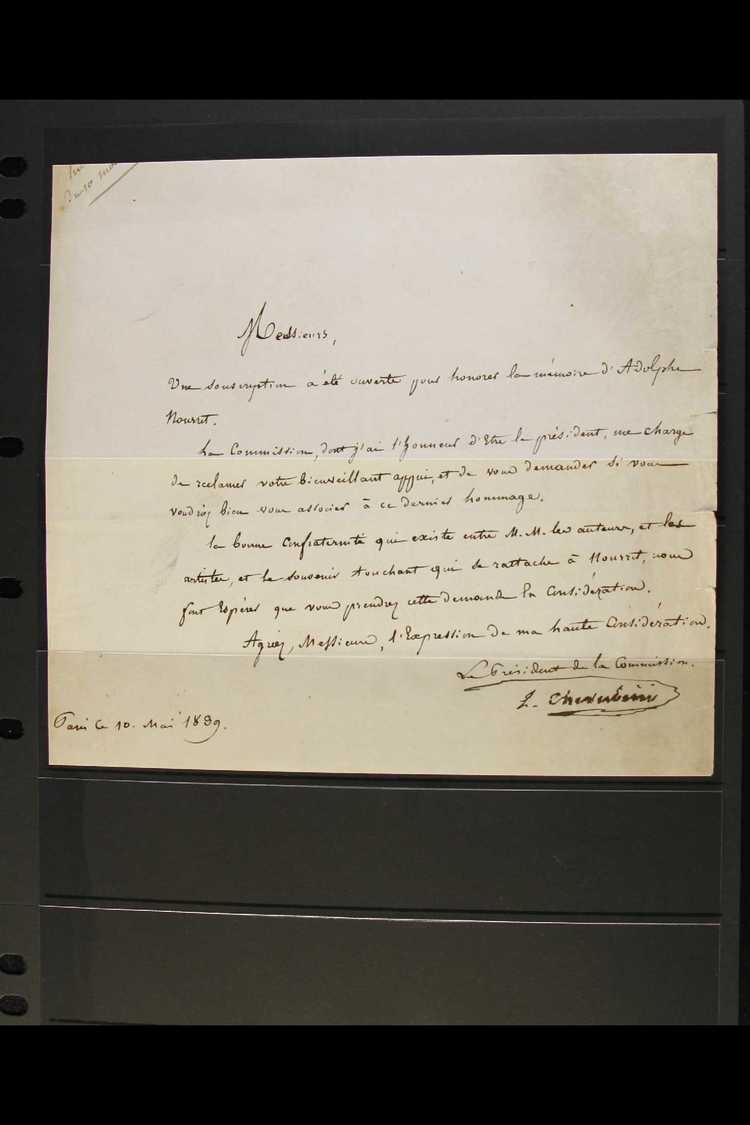 Messieurs,
Une souscription a été ouverte pour honorer la mémoire d'Adolphe
Nourrit.
La Commission, dont j'ai l'honneur d'Etre le président, me charge
de reclamer votre bienveillant appui, et de vous demander si vous
voudriez bien vous associer à ce dernier hommage.
La bonne Confraternité qui existe entre M.M. les auteurs, et les
artistes, et le souvenir touchant qui se rattache à Nourrit, nous
font Espérer que vous prendrez cette demande En Considération.
Agréez, Messieurs, l'Expression de ma haute Considération.
Le Président de la Commission.
L. Cherubini
Paris Ce 10. Mai 1839.